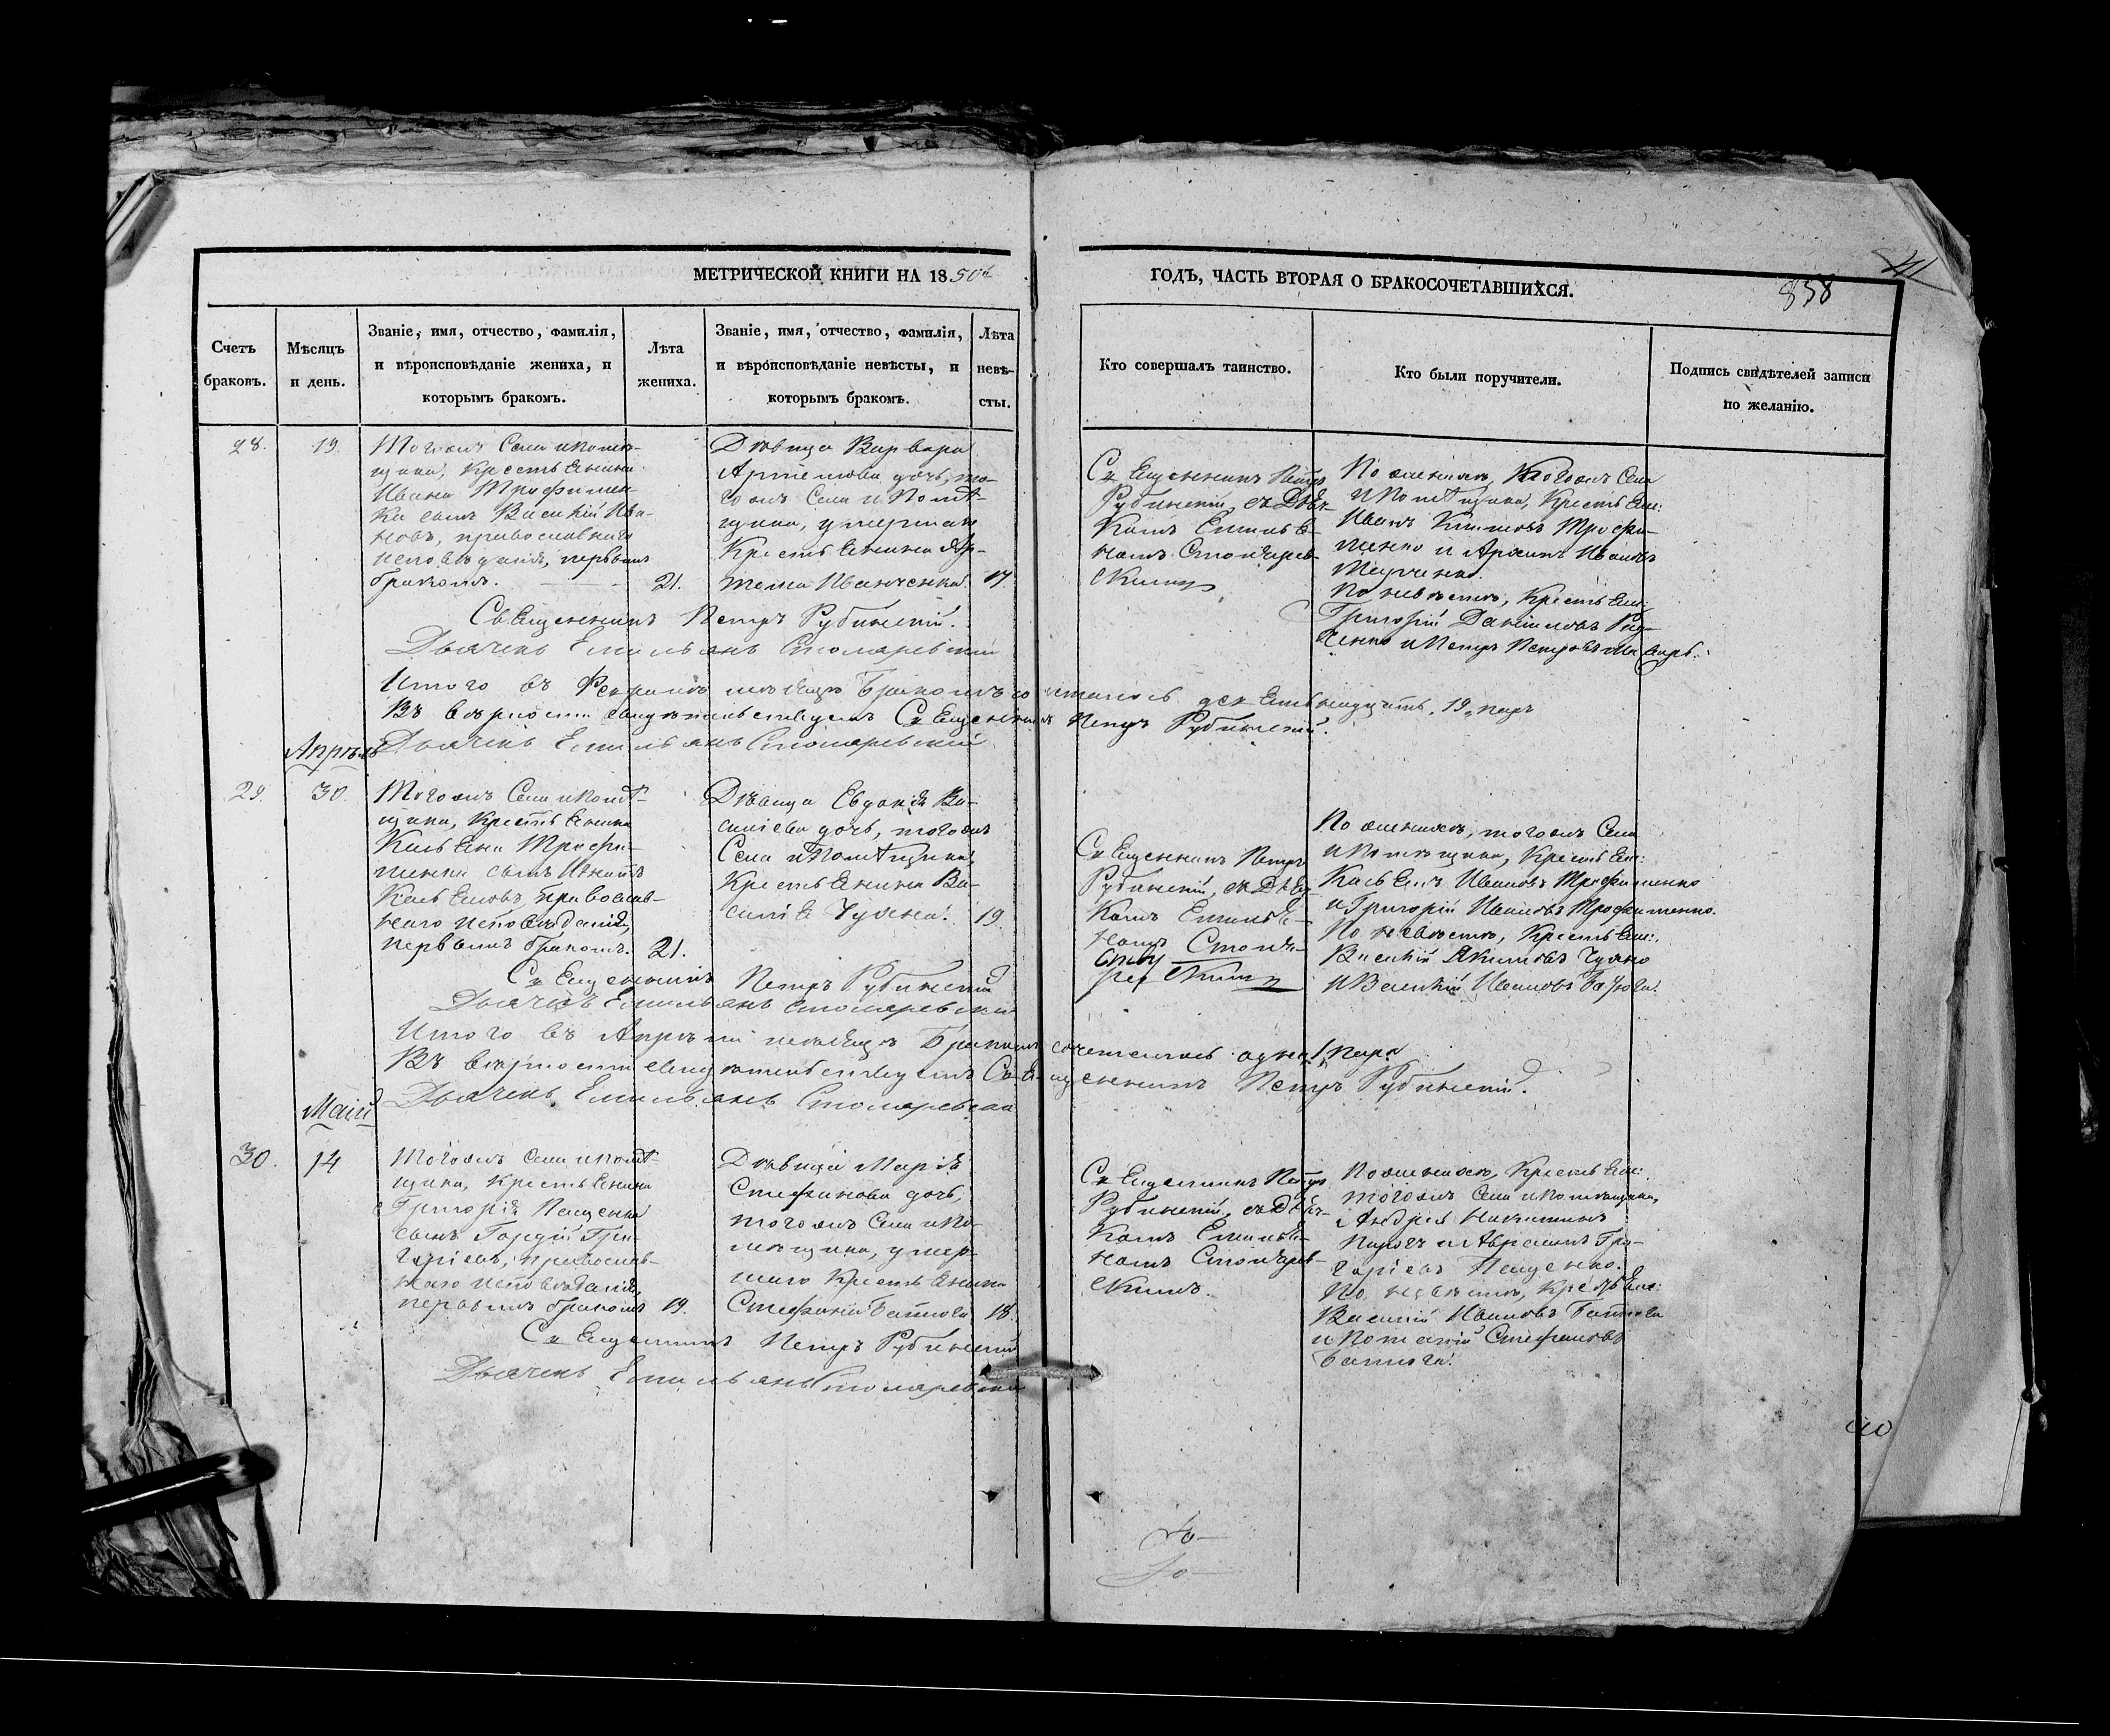 МЕТРИЧЕСКОЙ КНИГИ НА 1850й
ГОДЪ, ЧАСТЬ ВТОРАЯ О БРАКОСОЧЕТАВШИХСЯ.
858
Счетъ браковъ.
Мѣсяцъ и день.
Званіе, имя, отчество, фамилія,
и вѣроисповѣданіе жениха, и
которымъ бракомъ.
Лѣта
жениха.
Званіе, имя, отчество, фамилія,
и вѣроисповѣданіе невѣсты, и
которымъ бракомъ.
Лѣта
невѣ-
сты.
Кто совершалъ таинство.
Кто были поручители.
Подпись свидѣтелей записи
по желанію.
28.
19.
Тогожъ Села и помѣ-
щика, крестьянина
Ивана Трофимен-
ка сынъ Василій Ива-
новъ, православнаго
исповѣданія, первымъ
бракомъ.
21.
Дѣвица Варвара
Артемова дочь, то-
гожъ Села и Помѣ-
щика, умершаго
Крестьянина Ар-
тема Иванченка.
17.
Священникъ Петръ
Рубинскій, съ Дьяч-
комъ Емилья-
номъ Столярев-
скимъ
По женихѣ, тогожъ Села
и Помѣщика, Крестьяне:
Иванъ Трофи-
менко и Иановъ
По невѣстѣ, Крестьяне:
Григорій Даніиловъ
ченко и Петръ Петровъ
Священникъ Петръ Рубинскій.
Дьячекъ Емильянъ Столяревскій
Итого въ Февралѣ мѣсяцѣ Бракомъ сочеталось девятьнадцать, 19, паръ
Въ вѣрности свидѣтельствуетъ Священникъ Петръ Рубинскій.
Дьячекъ Емильянъ Столяревскій
Апрѣль
29.
30.
Тогожъ Села и помѣ-
щика, Крестьянина
Касьяна Трофи-
менка сынъ
Касьяновъ, православ-
наго исповѣданія,
первымъ бракомъ.
21.
Дѣвица Евдокія Ва-
силіева дочь, тогожъ
Села и Помѣщика,
Крестьянина Ва-
силія Чухна.
19.
Священникъ Петръ
Рубинскій, съ Дьяч-
комъ Емилья-
номъ Столя-
рев скимъ
По женихѣ, тогожъ Села
и Помѣщика, Крестьяне:
Касьянъ Ивановъ Трофименко
и Григорій Ивановъ Трофименко.
По невѣстѣ, Крестьяне:
Василій Якимовъ Чухно
и Василій Ивановъ
Священникъ Петръ Рубинскій
Дьячекъ Емильянъ Столяревскій
Итого въ Апрѣлѣ мѣсяцѣ Бракомъ сочеталась одна, 1, пара
Въ вѣрности свидѣтельствуетъ Священникъ Петръ Рубинскій.
Дьячекъ Емильянъ Столяревскій
Маій
30.
14
Тогожъ Села и помѣ-
щика, Крестьянина
Григорія Пащенка
сынъ Гордій Гри-
горіевъ, православ-
наго исповѣданія,
первымъ бракомъ
19.
Дѣвица Марія
Стефанова дочь,
тогожъ Села и по-
мѣщика, умер-
шаго Крестьянина
Стефана Батюга
18.
Священникъ Петръ
Рубинскій, съ Дьяч-
комъ Емилья-
номъ Столярев-
скимъ.
По женихѣ, Крестьяне:
тогожъ Села и помѣщика,
Андрей Никитинъ
и Абрамъ Гри-
горіевъ Пащенко.
По невѣстѣ, Крестьяне:
Василій Ивановъ Батюга
и Потапій Стефановъ
Батюга.
Священникъ Петръ Рубинскій
Дьячекъ Емильянъ Столяревскій